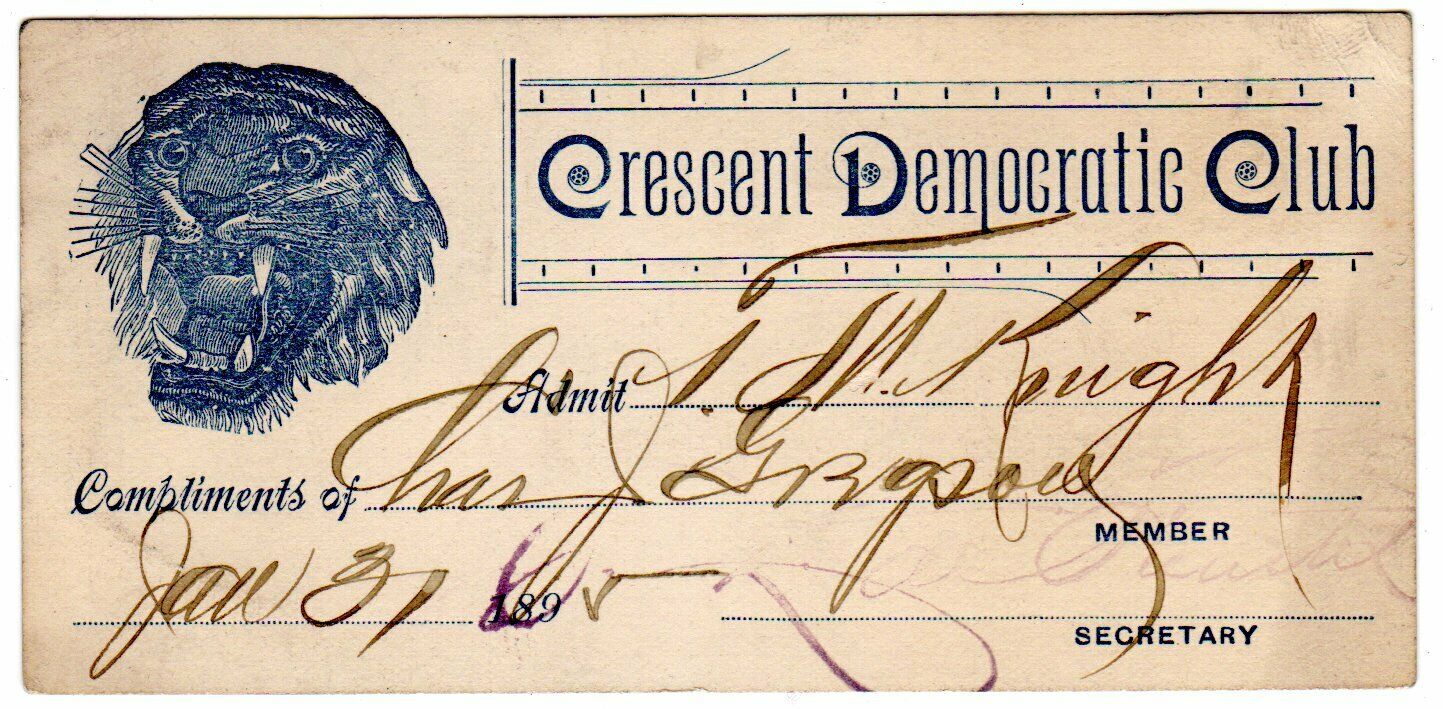 Crescent Democratic Club
Admit J. W. Knight
Compliments of Chas J
MEMBER
Jan 31 1895
SECRETARY